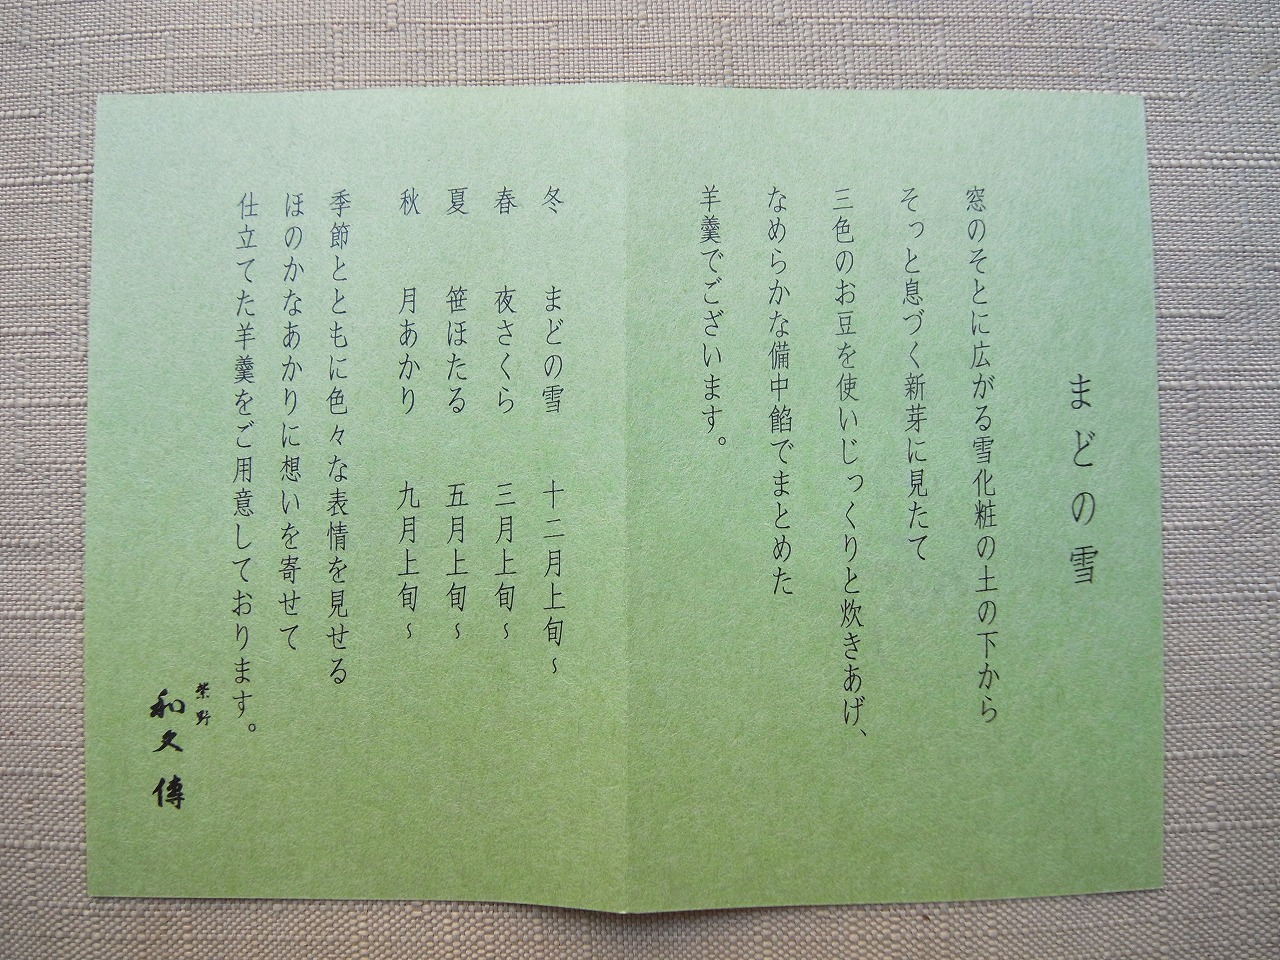 まどの雪
窓のそとに広がる雪化粧の土の下から
そっと息づく新芽に見たて
三色のお豆を使いじっくりと炊きあげ、
なめらかな備中餡でまとめた
羊羹でございます。
冬 まどの雪 十二月上旬~
春 夜さくら 三月上旬~
夏 笹ほたる 五月上旬~
秋 月あかり 九月上旬~
季節とともに色々な表情を見せる
ほのかなあかりに想いを寄せて
仕立てた羊羹をご用意しております。
紫野
和久傳